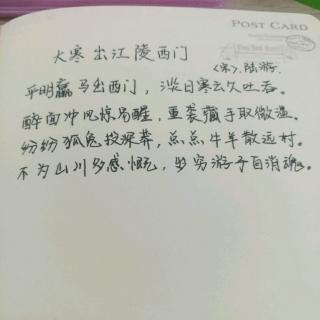 POST CARD
大寒出江陵西门
〈宋〉陆游.
平明羸马出西门，淡日寒云久吐吞。
醉面冲风惊易醒，重裘藏手取微温。
纷纷狐兔投深莽，点点牛羊散远村。
不为山川多感慨，岁穷游子自消魂。